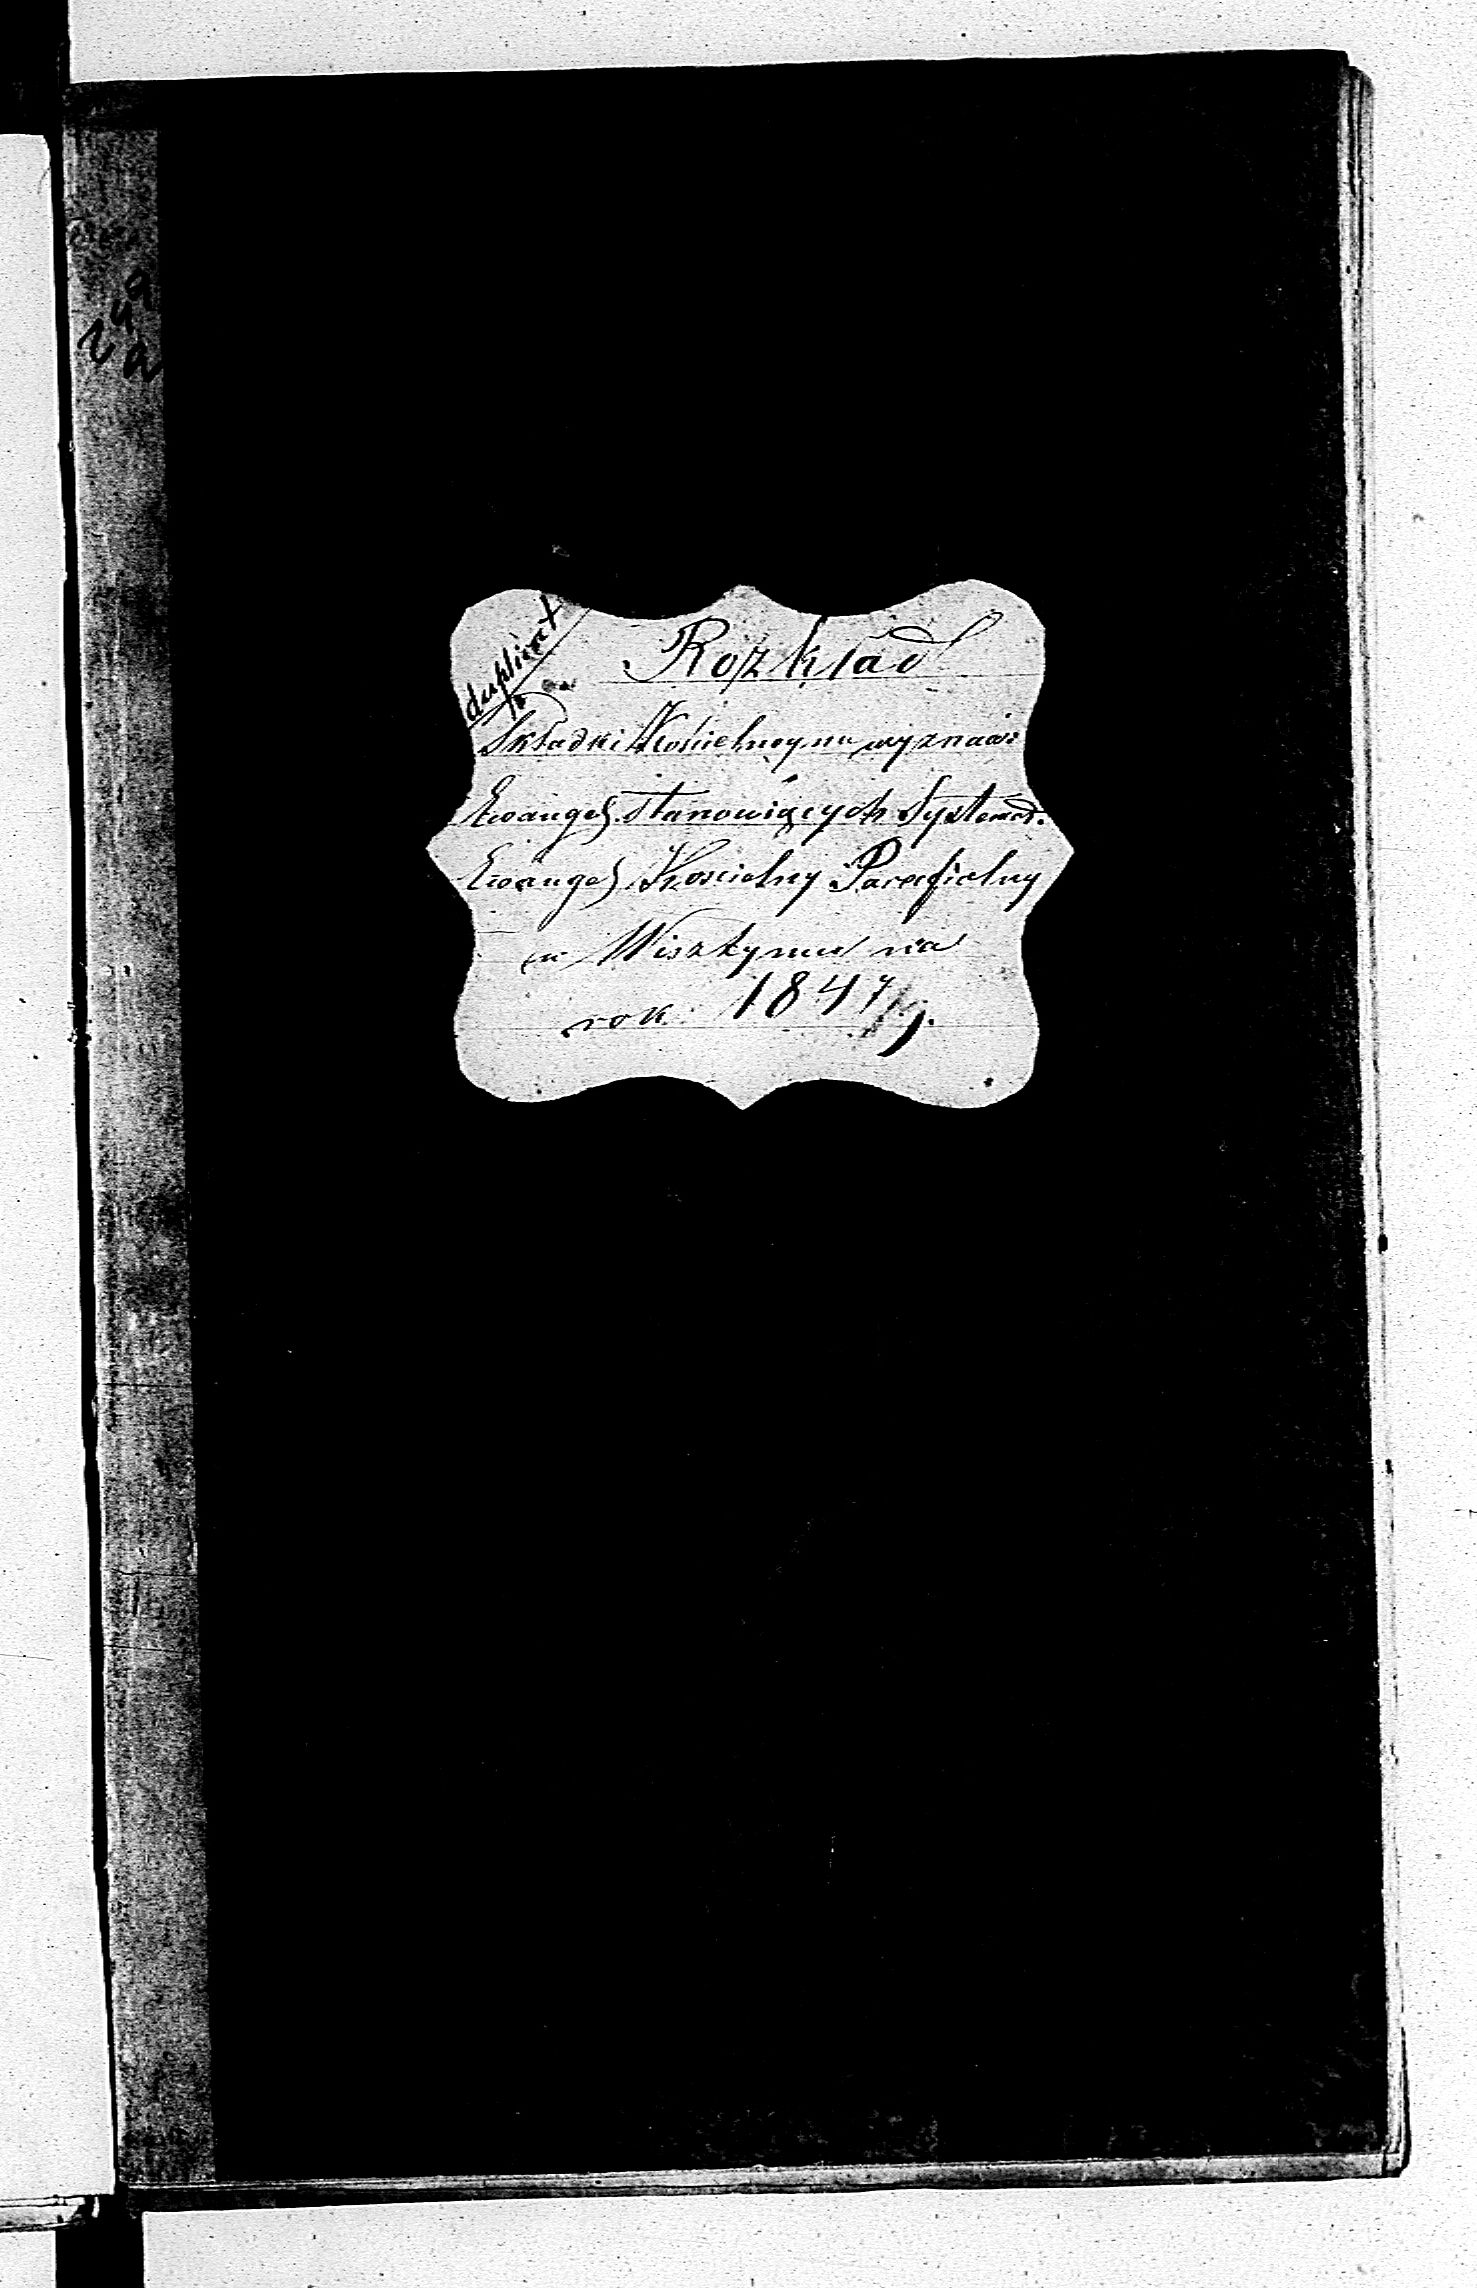 duplicat
Rozkład
Składki Kościelney na wyznaw:
Ewangel. Stanowiących System.
Ewangel Koscielny Parafialny
w Wisztyncu na
rok 1847/9.